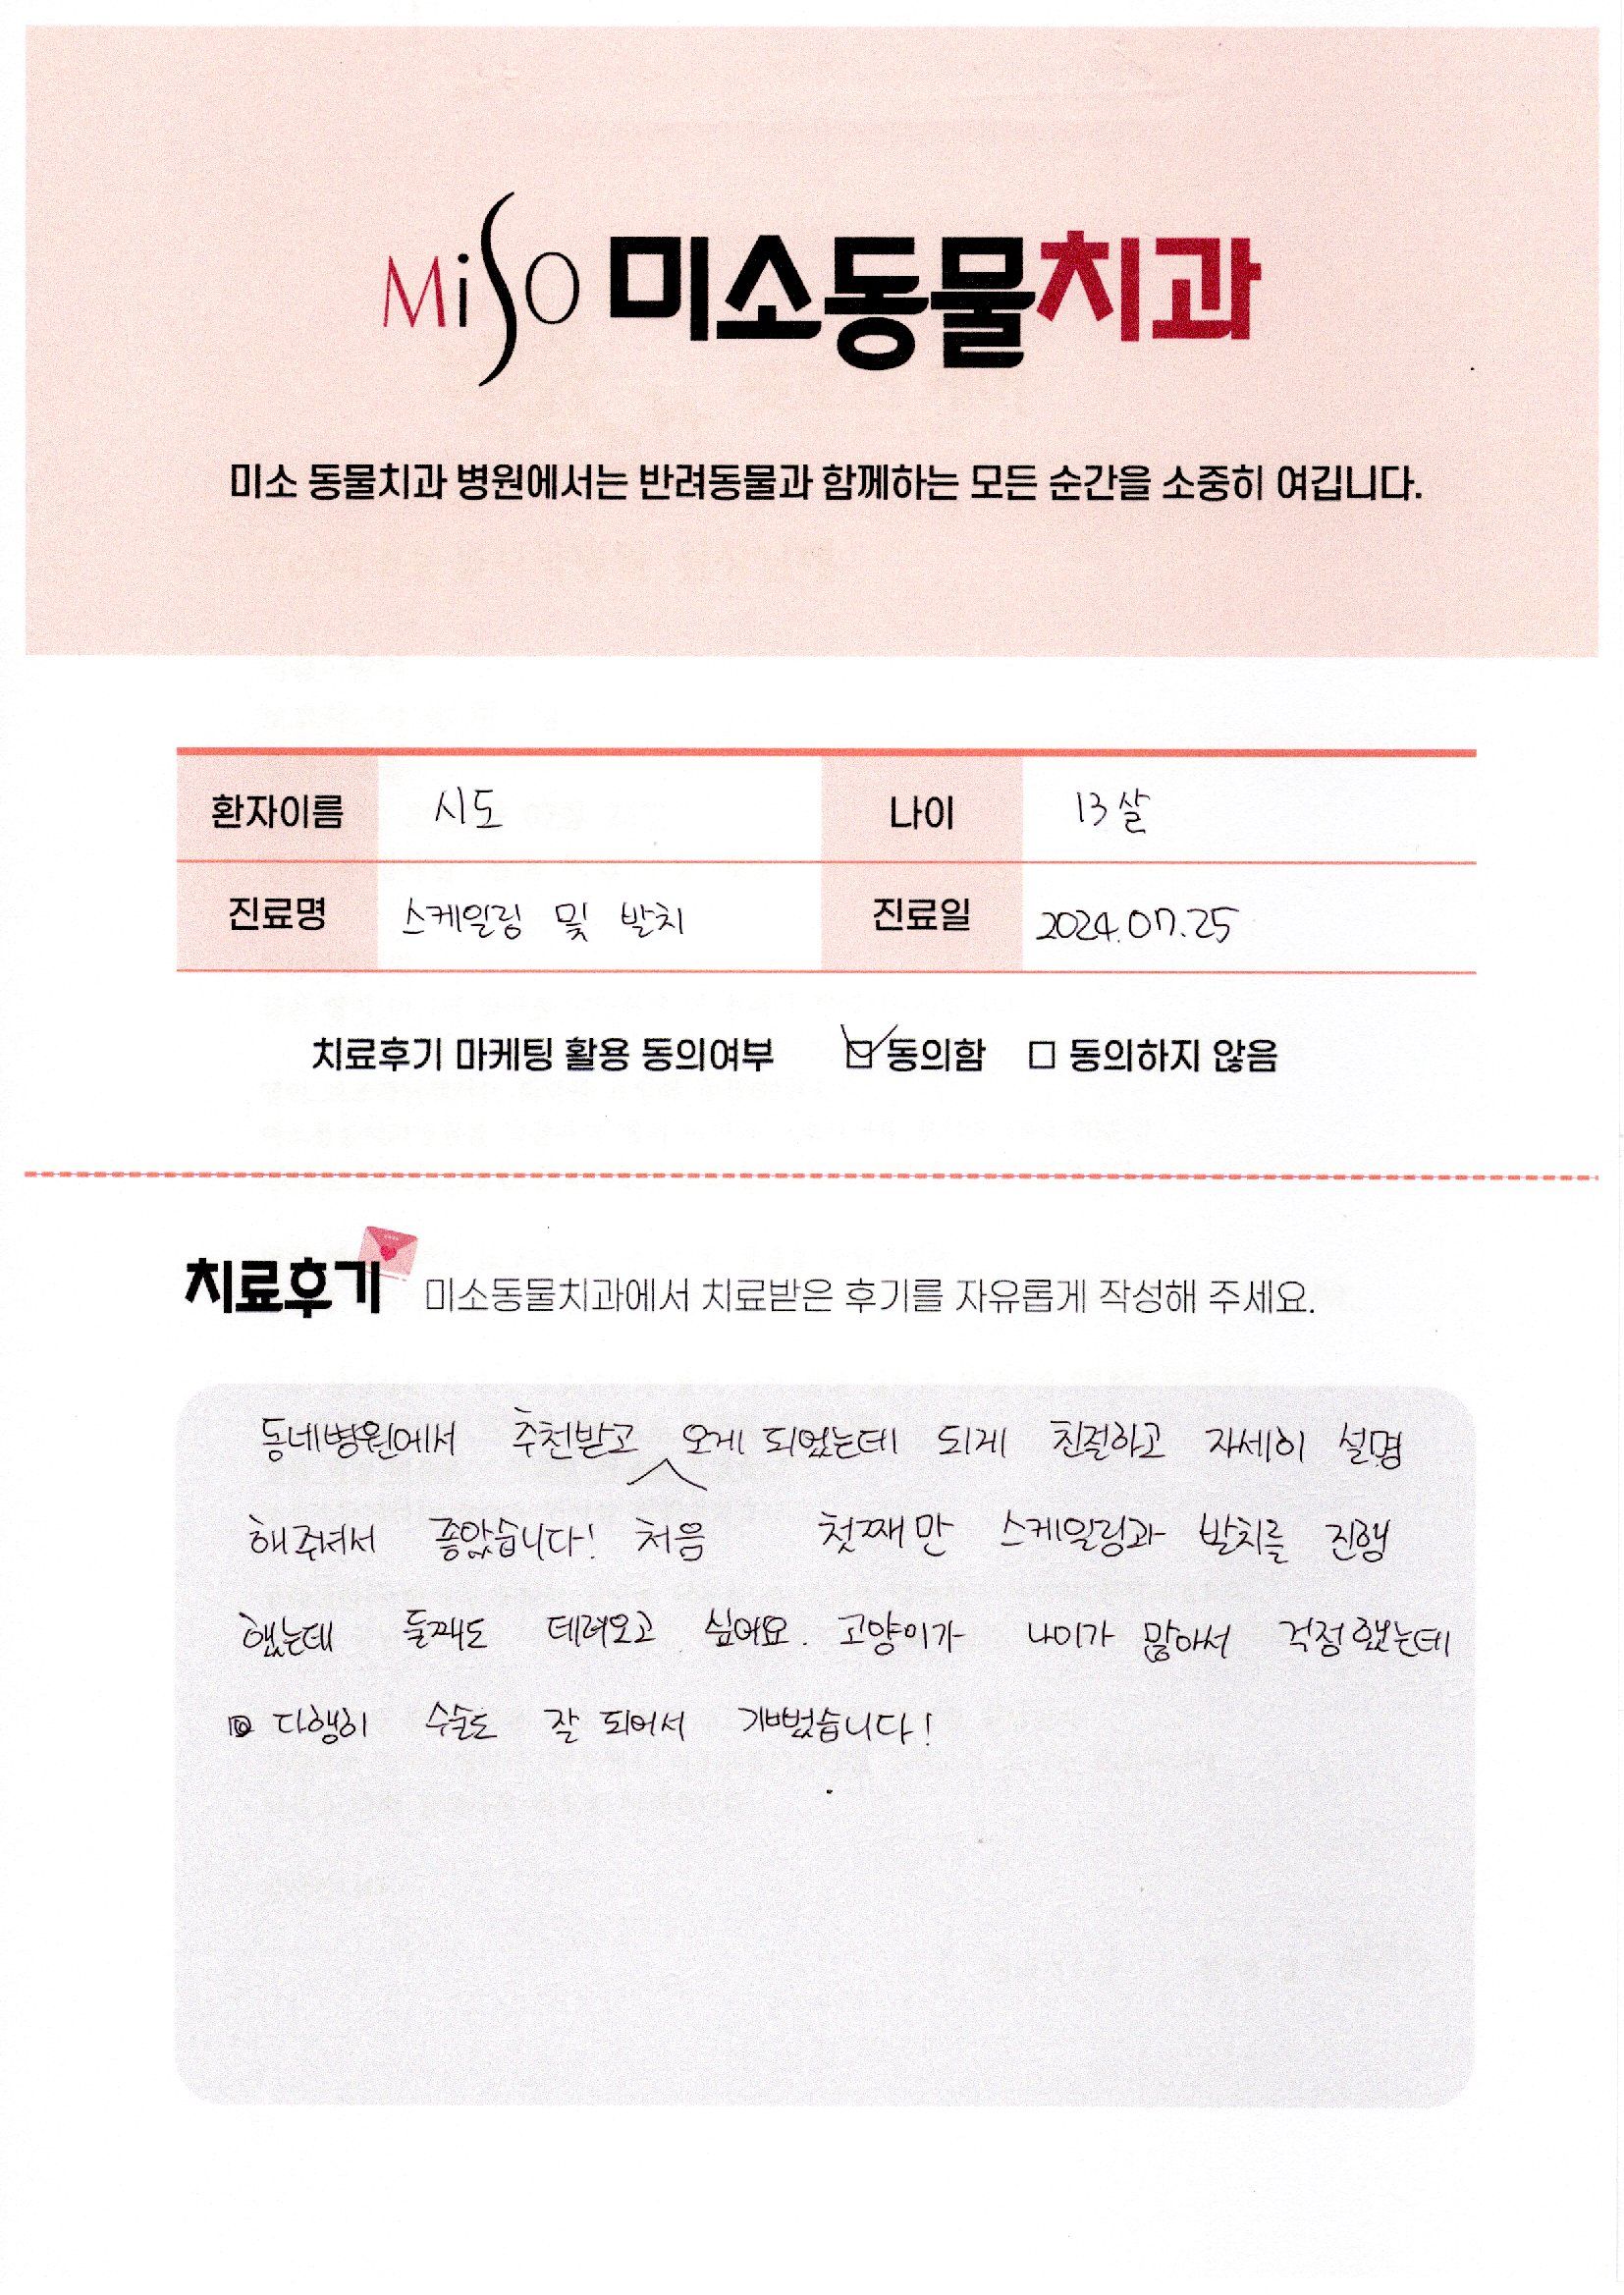 MiSO 미소동물치과
미소 동물치과 병원에서는 반려동물과 함께하는 모든 순간을 소중히 여깁니다.
환자이름 시도 나이 13살
진료명 스케일링 및 발치 진료일 2024.07.25
치료후기 마케팅 활용 동의여부 ☑ 동의함 □ 동의하지 않음
치료후기 미소동물치과에서 치료받은 후기를 자유롭게 작성해 주세요.
동네병원에서 추천받고 오게 되었는데 되게 친절하고 자세히 설명
해주셔서 좋았습니다! 처음 첫째만 스케일링과 발치를 진행
했는데 둘째도 데려오고 싶어요. 고양이가 나이가 많아서 걱정했는데
다행히 수술도 잘 되어서 기뻤습니다!